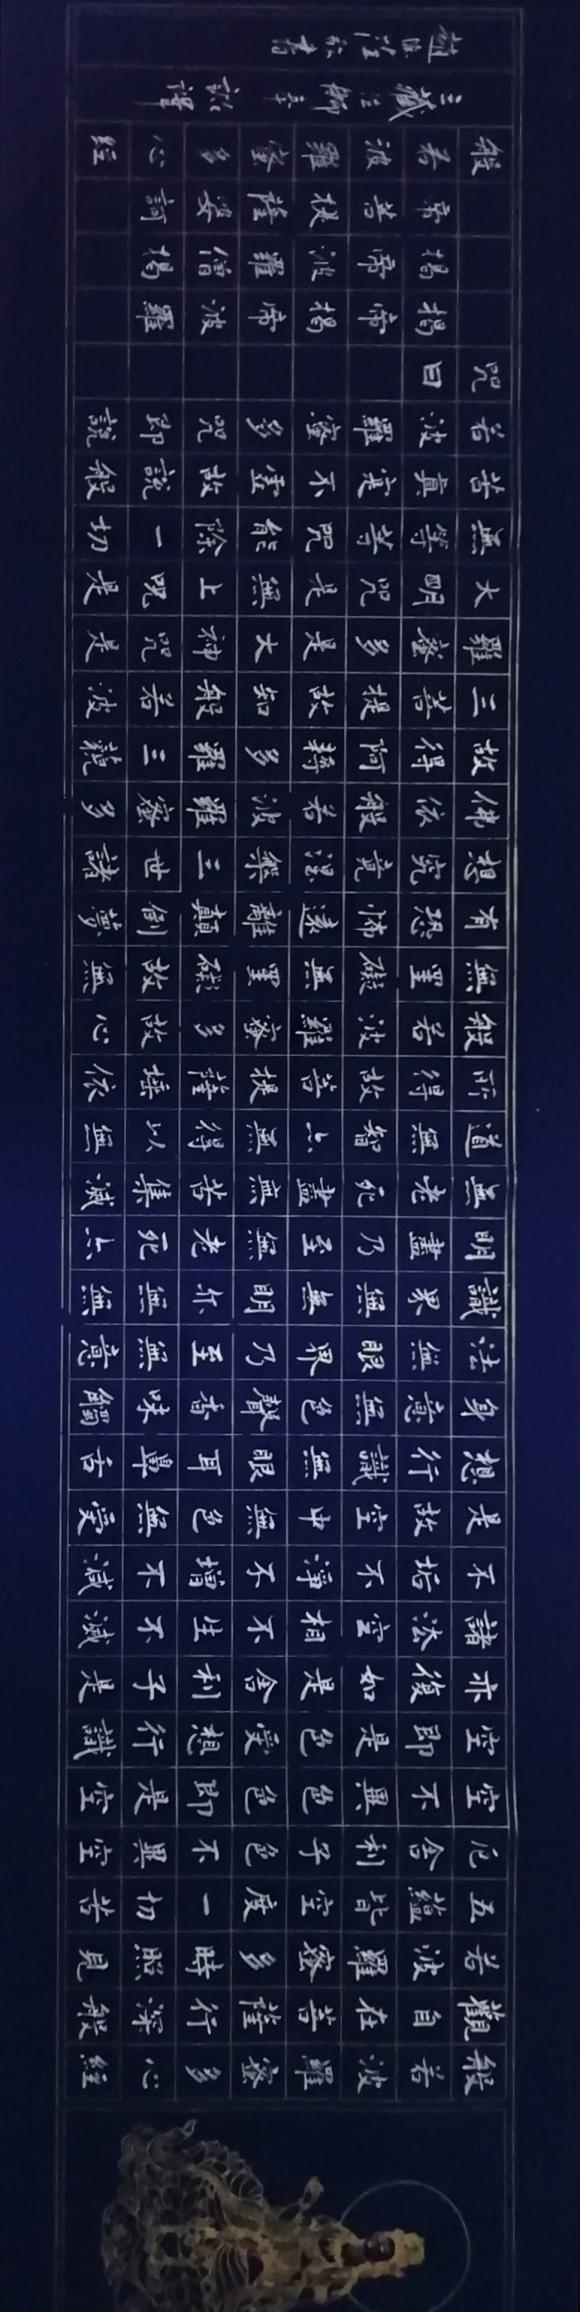 般若波羅蜜多心經
觀自在菩薩行深般
若波羅蜜多時照見
五蘊皆空度一切苦
厄舍利子色不異空
空不異色色即是空
空即是色受想行識
亦復如是舍利子是
諸法空相不生不滅
不垢不淨不增不減
是故空中無色無受
想行識無眼耳鼻舌
身意無色聲香味觸
法無眼界乃至無意
識界無無明亦無無
明盡乃至無老死亦
無老死盡無苦集滅
道無智亦無得以無
所得故菩提薩埵依
般若波羅蜜多故心
無罣礙無罣礙故無
有恐怖遠離顛倒夢
想究竟涅槃三世諸
佛依般若波羅蜜多
故得阿耨多羅三藐
三菩提故知般若波
羅蜜多是大神咒是
大明咒是無上咒是
無等等咒能除一切
苦真實不虛故說般
若波羅蜜多咒即說
咒曰
揭帝揭帝波羅
揭帝波羅僧揭
帝菩提薩婆訶
般若波羅蜜多心經
三藏法師奉詔譯
書